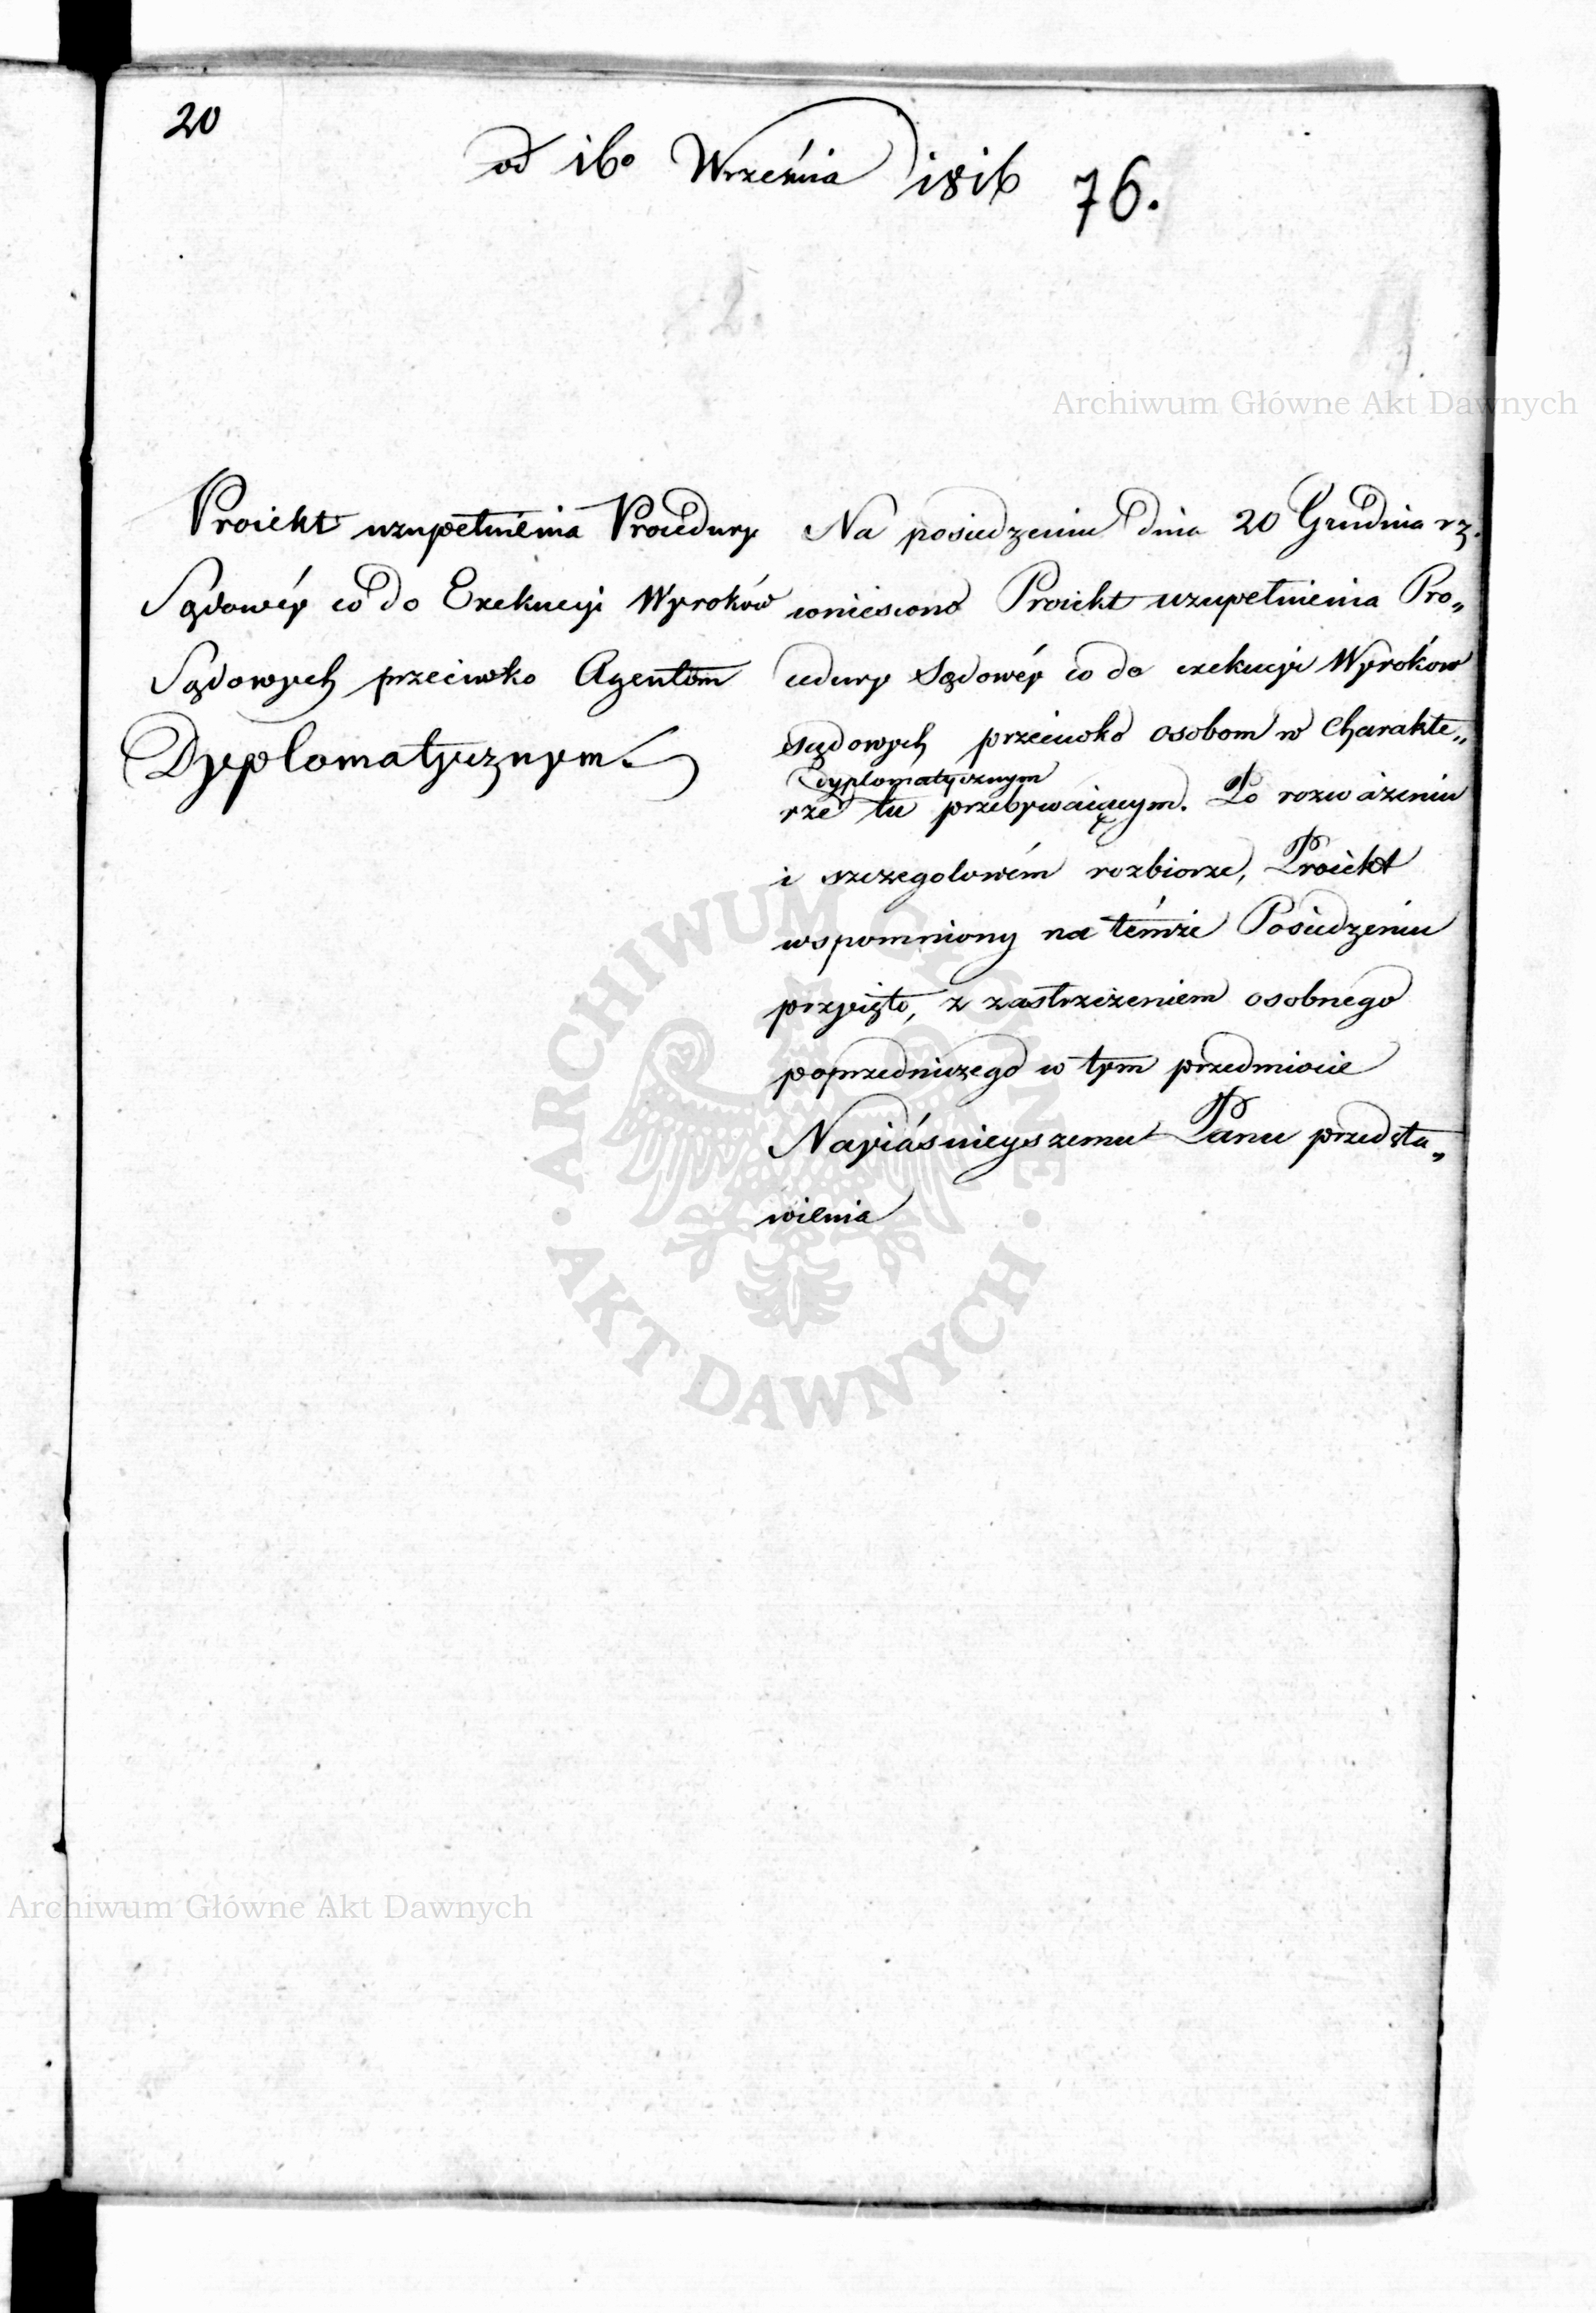 20
od 16º Września 1816
76.
Archiwum Główne Akt Dawnych
Proiekt uzupełnienia Procedury
Sądowéy co do Exekucyi Wyroków
Sądowych przeciwko Agentom
Dyplomatycznym.
Na posiedzeniu dnia 20 Grudnia rz.
wniesiono Proiekt uzupełnienia Pro„
cedury Sądowéy co do exekucyi Wyroków
sądowych przeciwko osobom w Charakte„
dyplomatycznym
rze tu przebywaiącym. Po rozważeniu
i szczegolowém rozbiorze, Proiekt
wspomniony na témże Posiedzeniu
przyięto, z zastrzeżeniem osobnego
poprzedniczego w tym przedmiocie
Nayiáśnieyszemu Panu przedsta„
wienia
ARCHIWUM GŁÓWNE
AKT DAWNYCH
Archiwum Główne Akt Dawnych